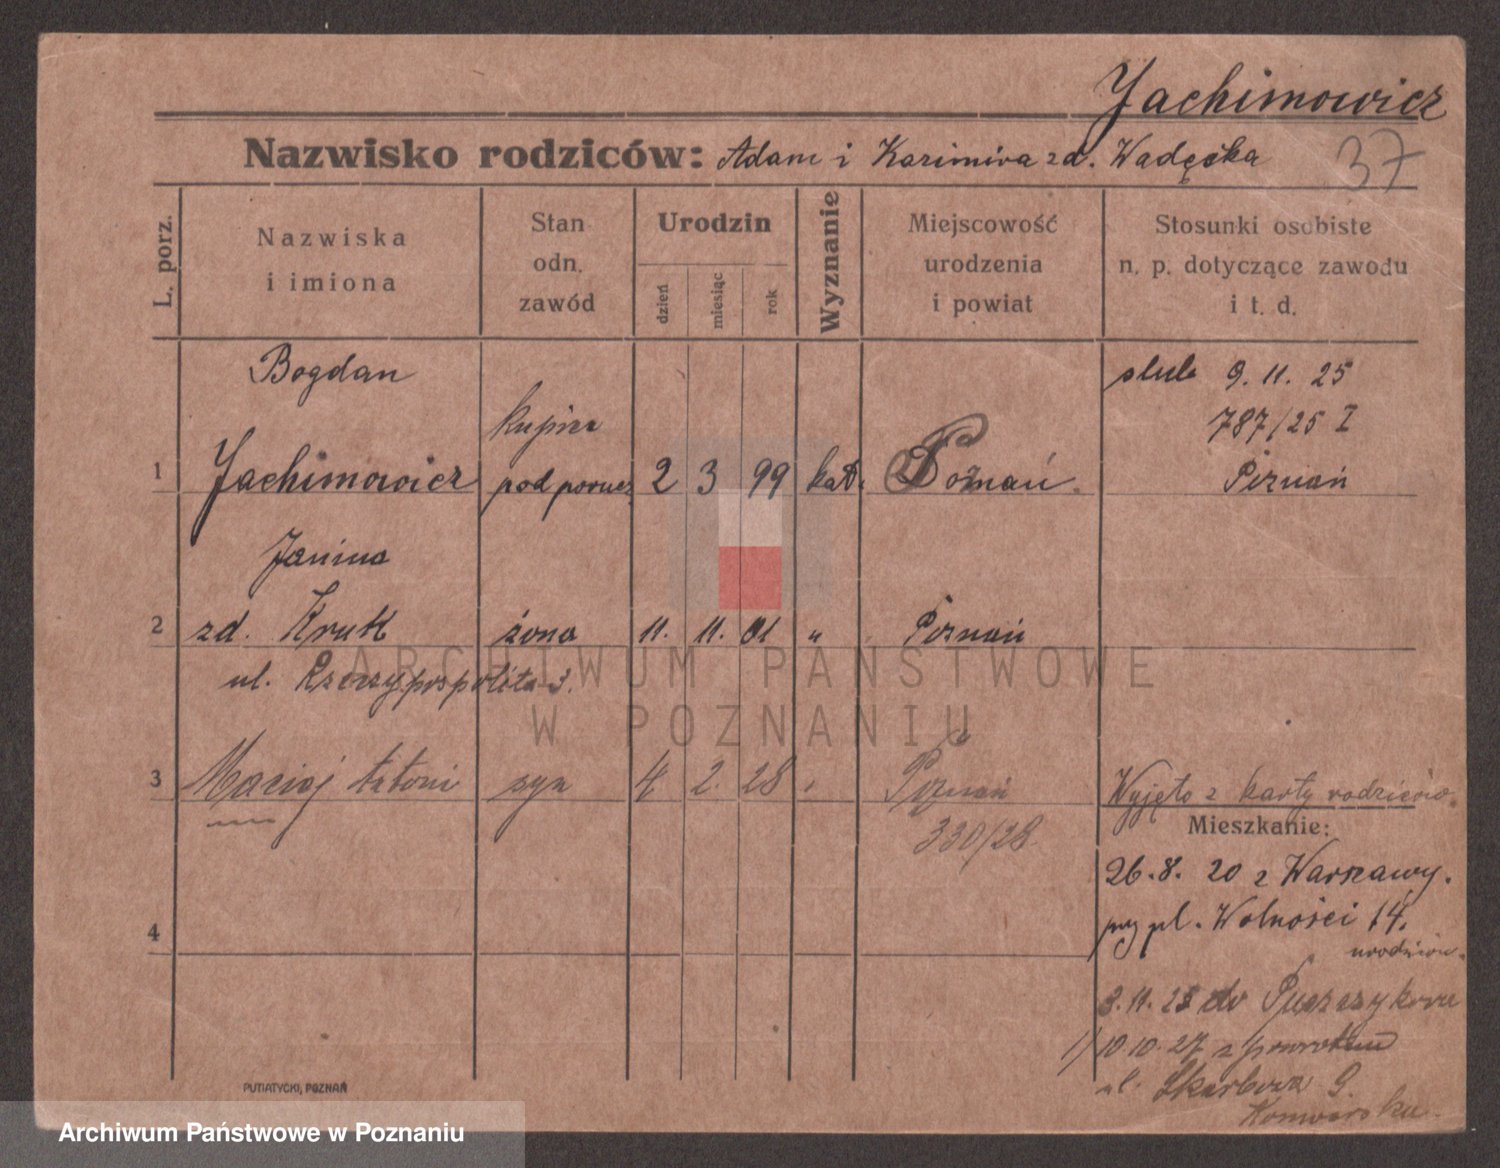 Jachimowicz
Nazwisko rodziców: Adam i Kazimira zd. Wadęcka
37
L. porz.
Nazwiska
i imiona
Stan
odn.
zawód
Urodzin
dzień
miesiąc
rok
Wyznanie
Miejscowość
urodzenia
i powiat
Stosunki osobiste
n. p. dotyczące zawodu
i t. d.
1
Bogdan
Jachimowicz
kupiec
podporucz
2 3 99
kat.
Poznań.
slub 9. 11. 25
787/25 I
Poznań
2
Janina
zd. Kruk
żona
11. 11. 01
"
Poznań
ul. Rzeczypospolita 3.
3
Maciej Antoni
syn
4 2. 28
"
Poznań
330/28
Wyjęto z karty rodziców
Mieszkanie:
26.8. 20 z Warszawy.
przy pl. Wolności 14.
urodzin.
4
3.11.25 do Puszczykowa
1/10.10.27 z powrotem
ul. Skarbowa 9.
PUTIATYCKI, POZNAŃ
ARCHIWUM PAŃSTWOWE
W POZNANIU
Archiwum Państwowe w Poznaniu